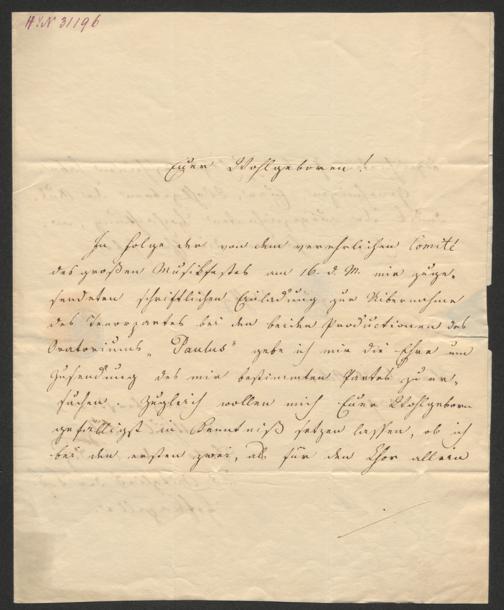 H.I.N 31196
Euer Wohlgeboren!
In Folge der von dem verehrlichen Comité
des großen Musikfestes am 16. d. M. mir zuge-
sendeten schriftlichen Einladung zur Übernahme
des Tenorpartes bei den beiden Productionen des
Oratoriums „Paulus" gebe ich mir die Ehre um
Zusendung des mir bestimmten Partes zu er-
suchen. Zugleich wollen mich Euer Wohlgeborn
gefälligst in Kenntniß setzen lassen, ob ich
bei den ersten zwei, als für den Chor allein